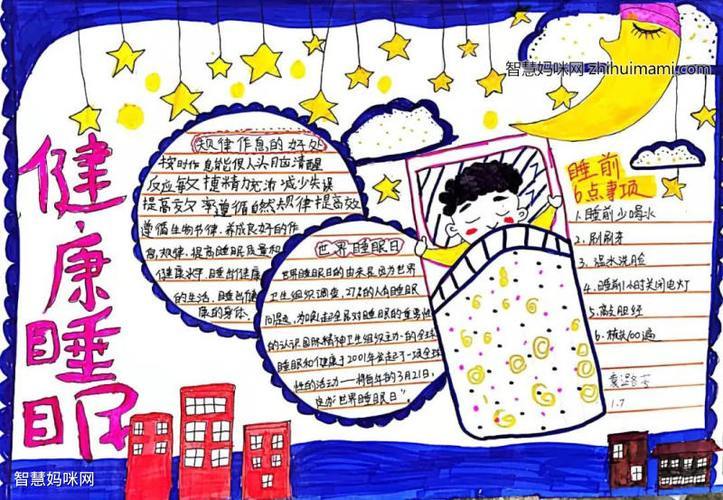 智慧妈咪网 zhihuimami.com
健康睡眠
规律作息的好处
按时作息能使人头脑清醒
反应敏捷精力充沛减少失误
提高效率遵循自然规律提高效
遵循生物节律,养成良好的作
息规律,提高睡眠质量和
健康水平,睡出健康
的生活,睡出健
康的身体。
世界睡眠日
世界睡眠日的由来是因为世界
卫生组织调查,27%的人有睡眠
问题,为唤起全民对睡眠的重要性
的认识国际精神卫生组织主办的全球
睡眠和健康于2001年发起了一项全球
性的活动——将每年的3月21日,
定为"世界睡眠日"。
睡前
6点事项
1.睡前少喝水
2.刷刷牙
3.温水洗脸
4.睡前1小时关闭电灯
5.敲胆经
6.梳头60遍
1.7
智慧妈咪网